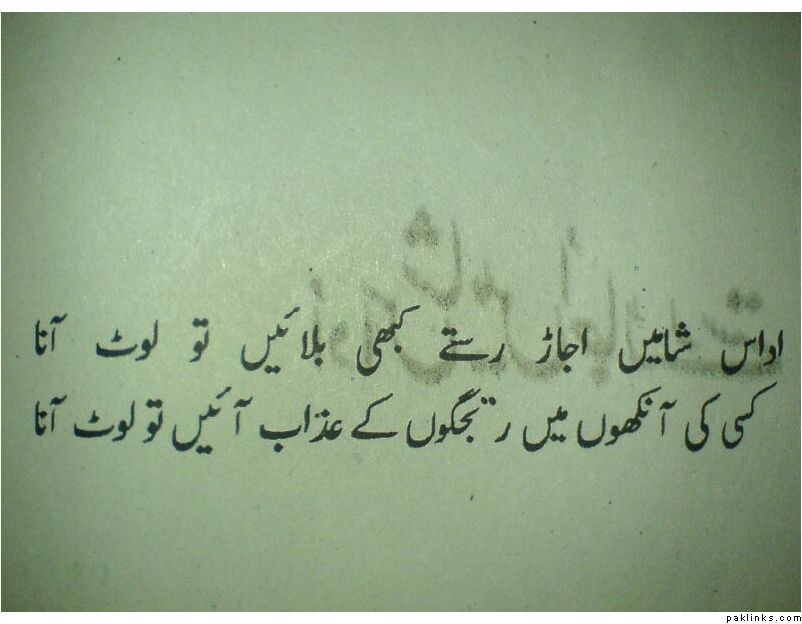 اداس شامیں اجاڑ رستے کبھی بلائیں تو لوٹ آنا
کسی کی آنکھوں میں رتجگوں کے عذاب آئیں تو لوٹ آنا
paklinks.com